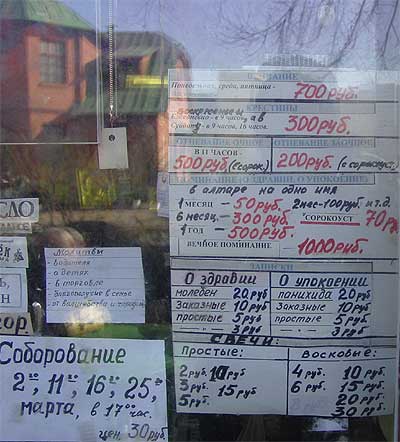 ВЕНЧАНИЕ
Понедельник, среда, пятница -
700 руб.
КРЕСТИНЫ
воскресенье
в 9 часов,
Суббота - в 9 часов, 16 часов.
300 руб.
ОТПЕВАНИЕ ОЧНОЕ ОТПЕВАНИЕ ЗАОЧНОЕ
В 11 ЧАСОВ
500 руб. (с сорок.) 200 руб. (с сорокоуст.
ПОМИНАНИЕ (О ЗДРАВИИ, О УПОКОЕНИИ)
в алтаре на одно имя
1 месяц - 50 руб. 2 мес-100 руб. и т.д.
6 месяц. - 300 руб. "СОРОКОУСТ 70 р
1 год - 500 руб.
ВЕЧНОЕ ПОМИНАНИЕ - 1000 руб.
ЗАПИСКИ
О здравии О упокоении
молебен 20 руб панихида 20 руб
Заказные 10 руб Заказные 10 руб
простые 5 руб простые 5 руб
— 3 руб — 3 руб
СВЕЧИ:
Простые: Восковые:
2 руб. 10 руб 4 руб. 10 руб.
3 руб. 15 руб 6 руб. 15 руб.
5 руб. 20 руб.
30 руб.
СЛО
Молитвы
- водителя
- о детях
- в торговле
- благополучие в семье
- от пьянства и
ОР.
Соборование
2⁰⁰, 11⁰⁰, 16⁰⁰, 25⁰⁰,
марта, в 17⁰⁰ час.
цен. 30 руб.